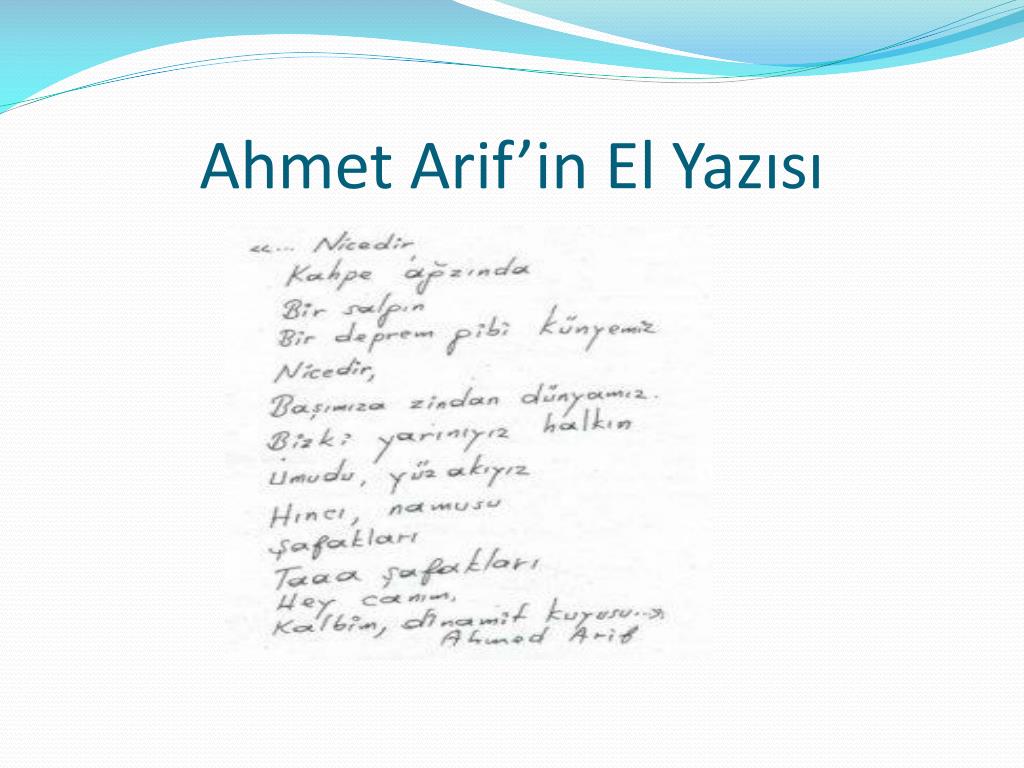 Ahmet Arif’in El Yazısı
«... Nicedir,
Kahpe ağzında
Bir salgın
Bir deprem gibi künyemiz
Nicedir,
Başımıza zindan dünyamız.
Bizki yarınıyız halkın
Umudu, yüz akıyız
Hıncı, namusu
Şafakları
Taaa şafakları
Hey canım,
Kalbim, dinamit kuyusu...»
Ahmed Arif